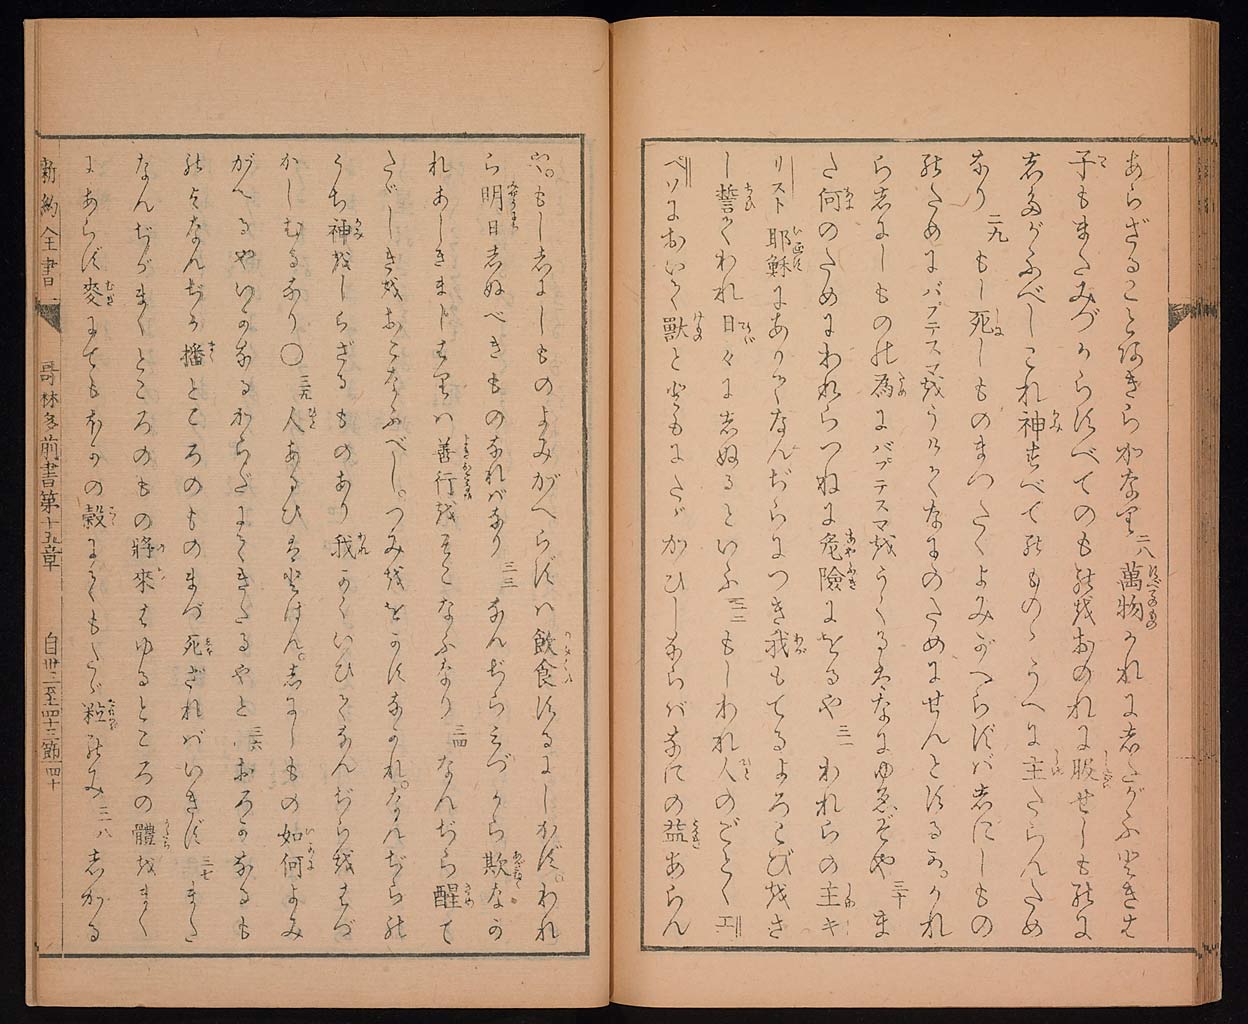 あらざることあきらかなり 二八 萬物かれにしたがふときは
子もまたみづからすべてのものをおのれに服せしものに
したがふべしこれ神すべてのものゝうへに主たらんため
なり 二九 もし死しものまつたくよみがへらずバしにしもの
のためにバプテスマをうけてなにのためにせんとするか。かれ
らしにしものの為にバプテスマをうくるはなにゆゑぞや 三十 ま
た何のためにわれらつねに危險にをるや 三一 われらの主キ
リスト耶穌にありてなんぢらにつき我もてるよろこびをさ
し誓てわれ日々にしぬるといふ 三二 もしわれ人のごとくエ
ペソにおいて獸とともにたゝかひしならバなにの益あらん
や。もししにしものよみがへらずハ飲食するにしかず。われ
ら明日しぬべきものなれバなり 三三 なんぢらみづから欺なか
れあしきまじはりハ善行をそこなふなり 三四 なんぢら醒て
たゞしきをおこなふべし。つみををかすなかれ。なんぢらの
うち神をしらざるものあり我かくいひてなんぢらをはづ
かしむるなり〇 三五 人あるひはとはん。しにしもの如何よみ
がへるやいかなるからだにてきたるやと 三六 おろかなるも
のよなんぢが播ところのものまづ死ざれバいきず 三七 また
なんぢがまくところのもの將來はゆるところの體をまく
にあらず麥にてもほかの穀にてもたゞ粒のみ 三八 しかる
新約全書 哥林多前書第十五章 自卅三至四十三節 四十